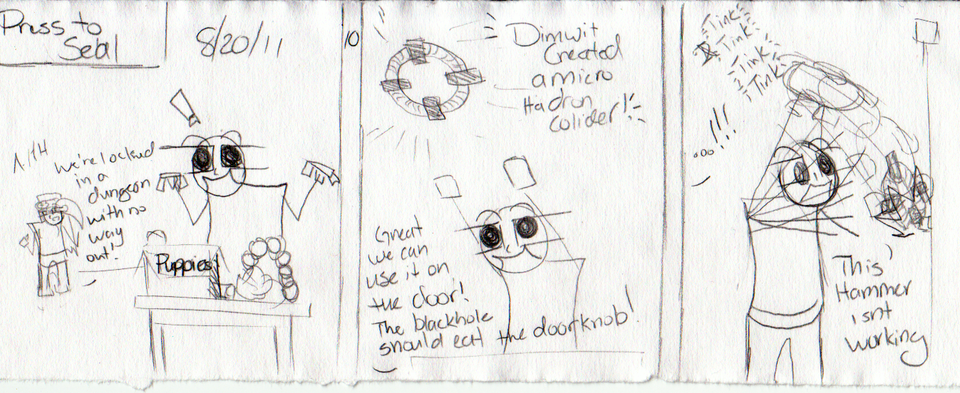 Press to
Seal
8/20/11
we're locked
in a
dungeon
with no
way
out!
Puppies!
10
Dimwit
Created
a micro
Hadron
colider!
Great
we can
use it on
the door!
The blackhole
should eat the doorknob!
Tink
Tink
Tink
Tink
...!!!
This
Hammer
isnt
working